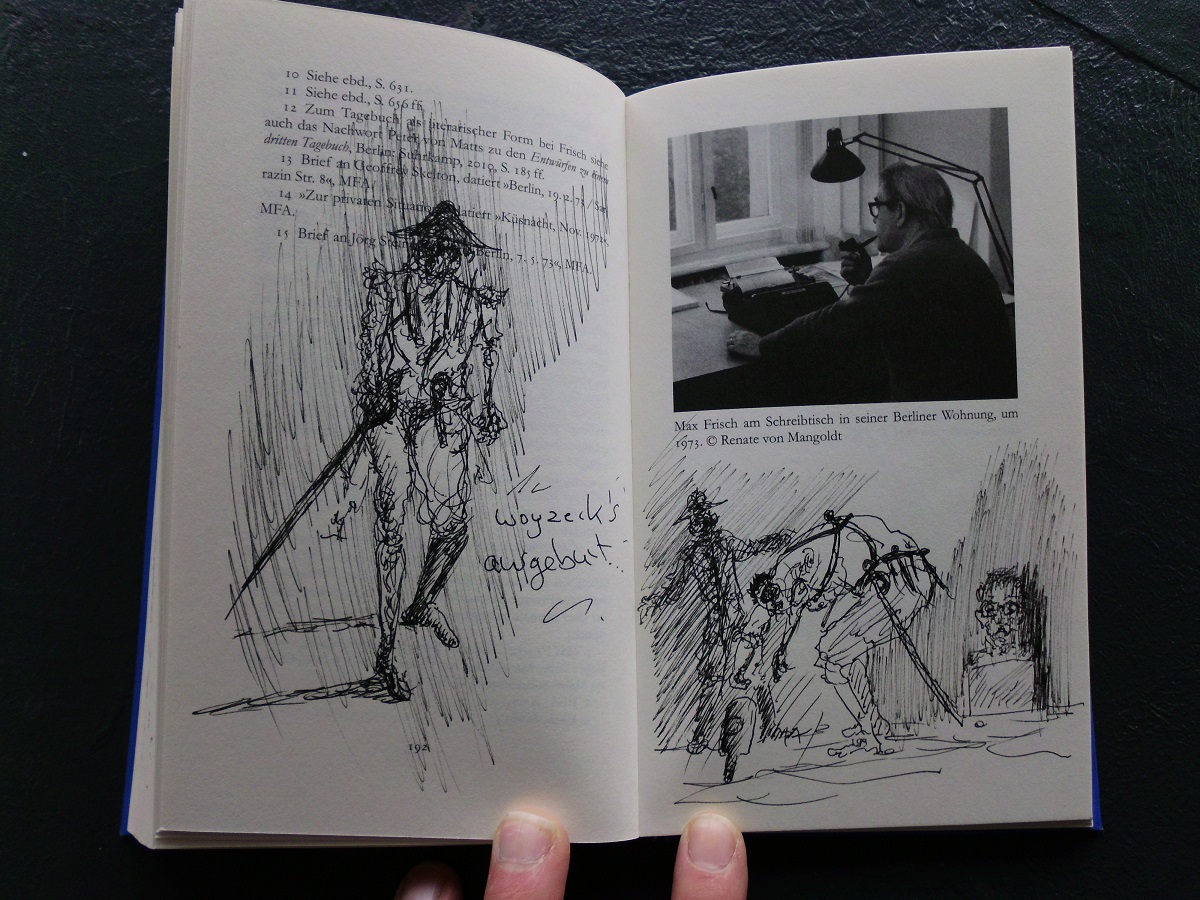 10 Siehe ebd., S. 631.
11 Siehe ebd., S. 656 ff.
12 Zum Tagebuch als literarischer Form bei Frisch siehe
auch das Nachwort Peter von Matts zu den Entwürfen zu einem
dritten Tagebuch, Berlin: Suhrkamp, 2010, S. 185 ff.
13 Brief an Geoffrey Skelton, datiert »Berlin, 19.2.73 / Sar-
razin Str. 8«, MFA.
14 »Zur privaten Situation«, datiert »Küsnacht, Nov. 1972«,
MFA.
15 Brief an Jörg Berlin, 7. 5. 73«, MFA.
woyzeck's
ausgebuit
192
Max Frisch am Schreibtisch in seiner Berliner Wohnung, um
1973. © Renate von Mangoldt